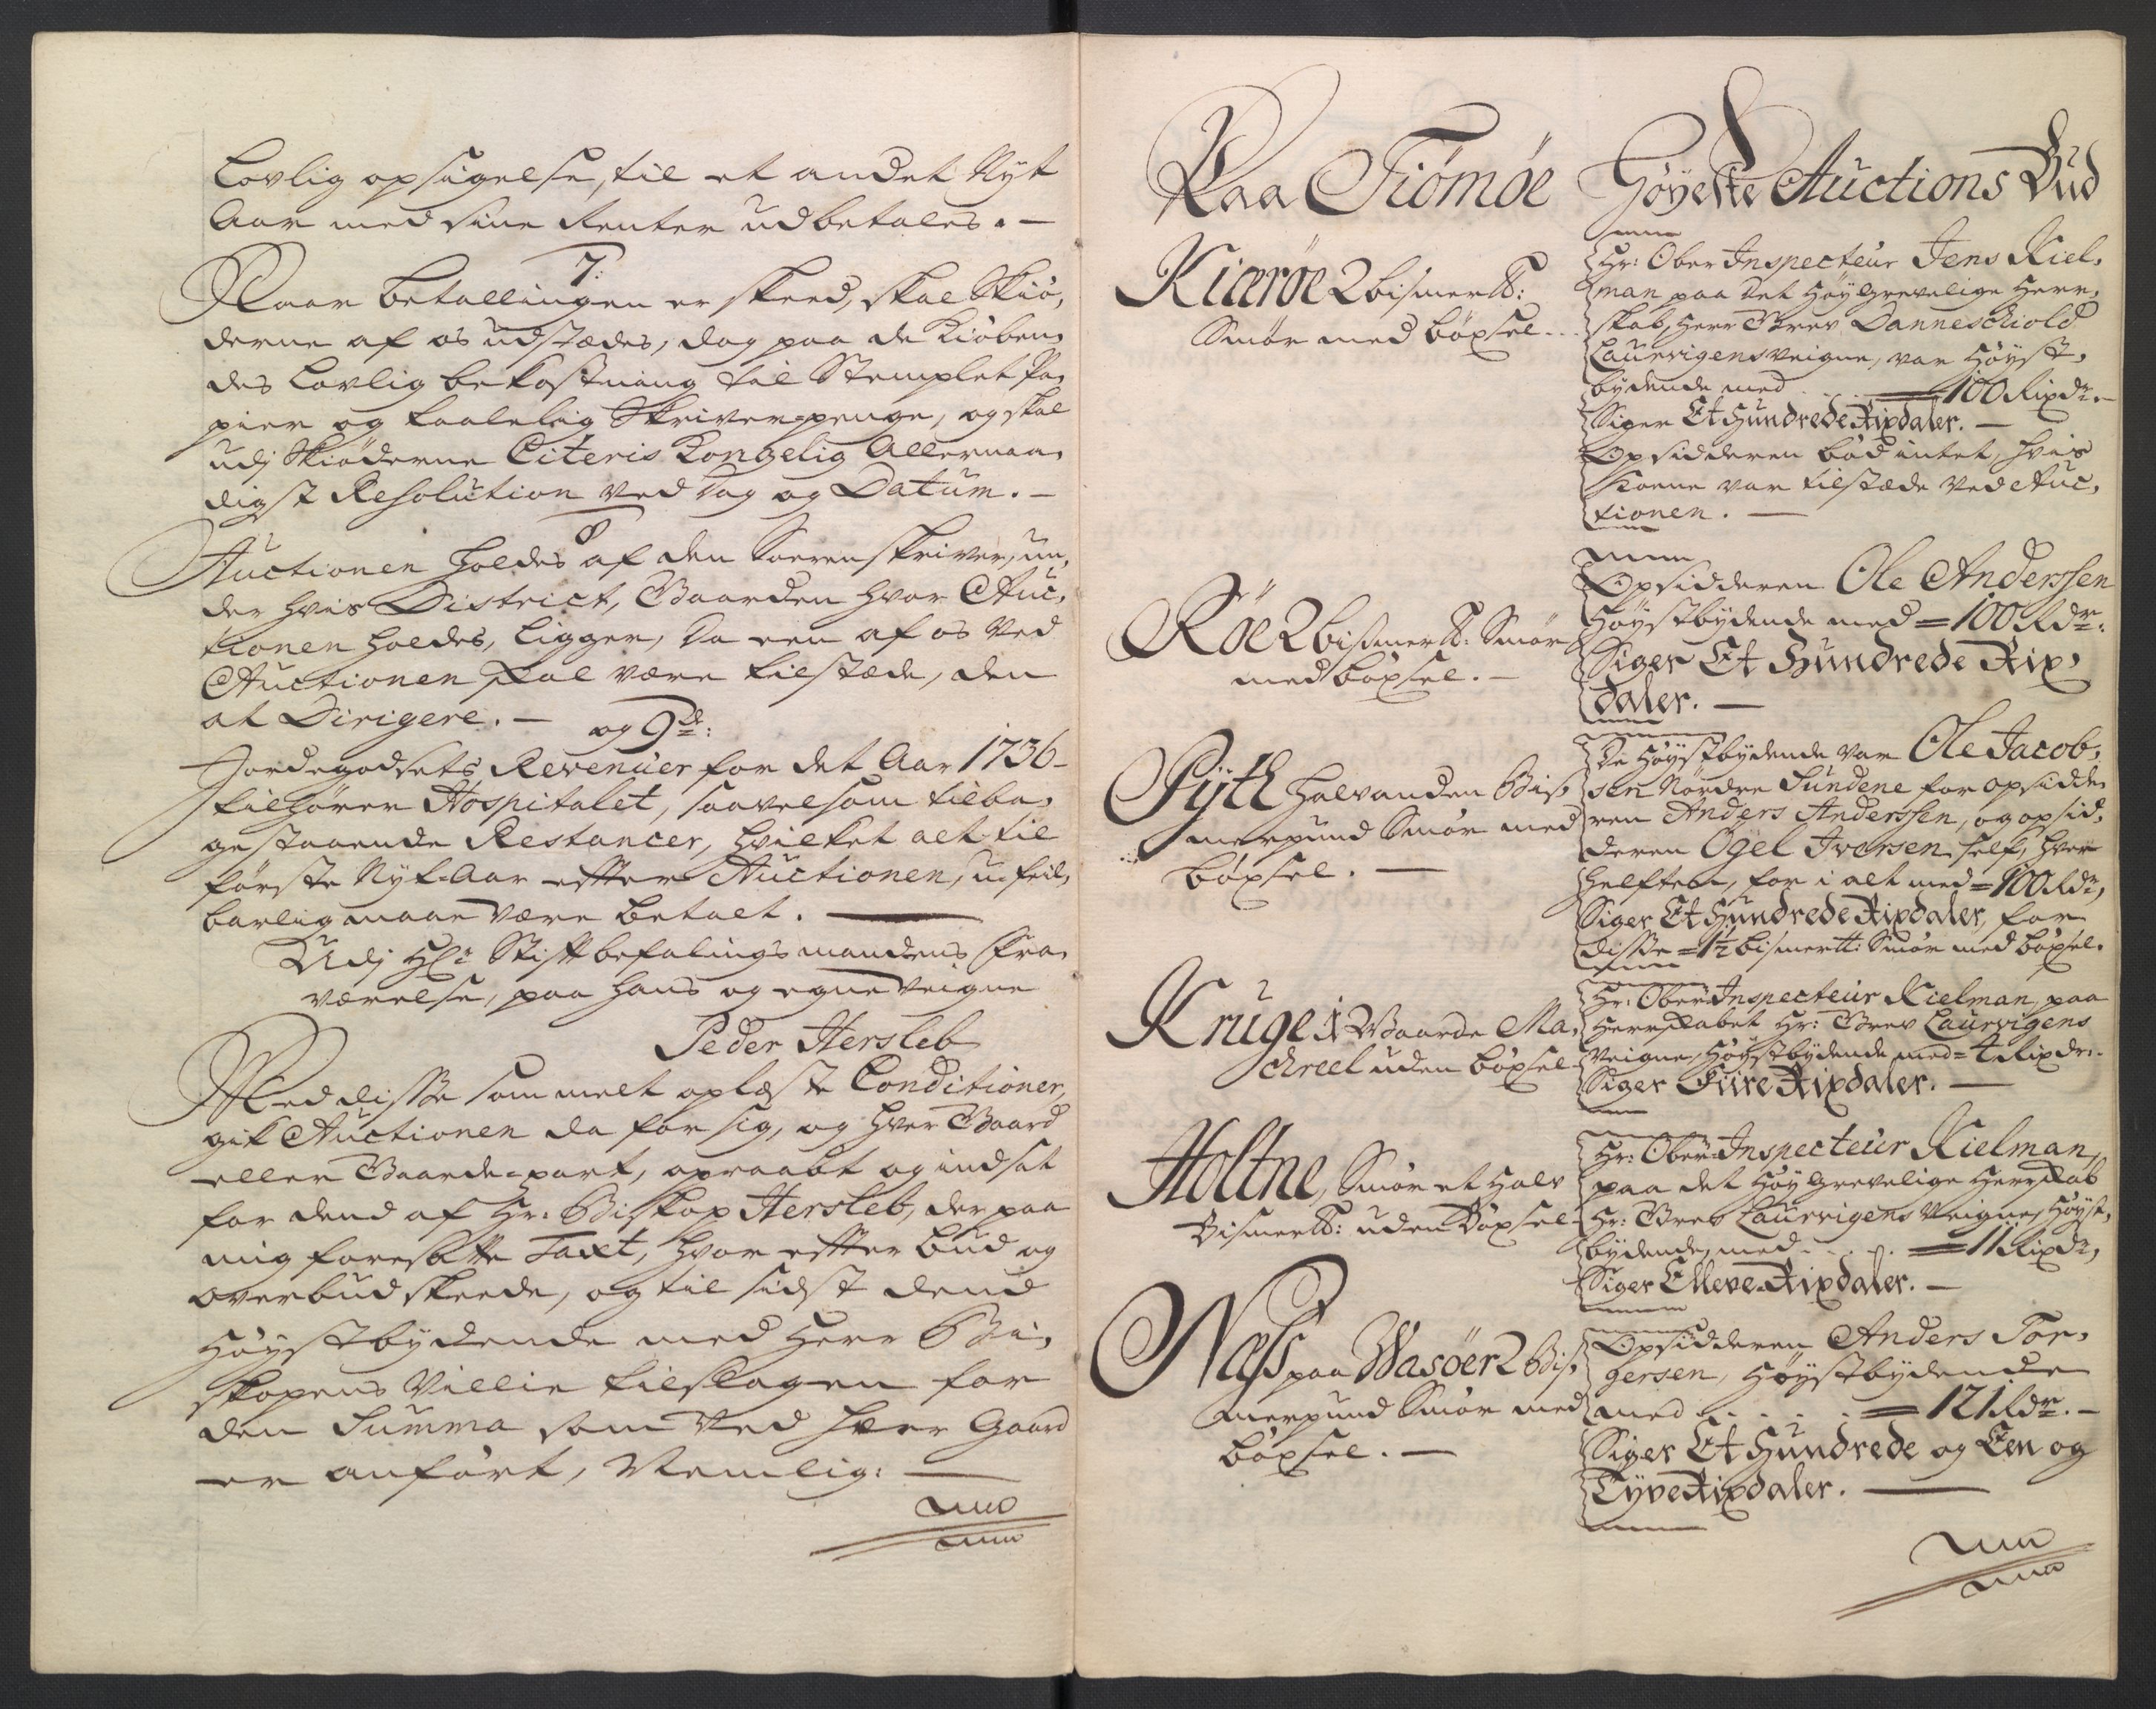 Lovlig opsigelse, til et andet Nyt
Aar med sine Renter udbetales. —
7:
Naar betallingen er skeed, skal Skiö,
derne af os udstædes, dog paa de Kiöben,
des Lovlig bekostning til Stemplet Pa,
pier og taalelig Skriver=penge, og skal
udj Skiöderne Citeris Kongelig Allernaa,
digst Resolution ved Dag og Datum. —
8
Auctionen holdes af den Sorenskriver, un,
der hvis District, Gaarden hvor Auc,
tionen holdes, ligger, da een af os ved
Auctionen skal være tilstæde, den
at Dirigere. —
og 9de:
Jordegodsets Revenüer for det Aar 1736
tilhører Hospitalet, saavelsom tilba,
gestaaende Restancer, hvilket alt til
förste Nyt=Aar efter Auctionen, u-feil,
barlig maae være betalt. —
Udj Hr: Stiftbefalingsmandens fra,
værelse, paa hans og egne veigne
Peder Hersleb
Med disse som melt oplæste Conditioner,
gik Auctionen da for sig, og hver Gaard
eller Gaarde=part, opraabt og indsat
for dend af Hr: Biskop Hersleb, der paa
mig foresatte Taxt, hvor efter bud og
overbud skeede, og til sidst dend
Höystbydende med Herr Bi,
skopens Villie tilslagen for
den Summa som ved hver Gaard
er anfört, Nemlig: —
Paa Tiömöe
Höyeste Auctions Bud
Kieröe 2 bismer ℔:
Smör med böxsel..
Hr: Ober Inspecteur Jens Kiel,
man paa det Höy Grevelige Herr,
skab, Herr Grev Danneschiold
Laurvigens veigne, var Höyst,
bydende med = 100 Rixdr. —
Siger Et Hundrede Rixdaler. —
Opsidderen böd intet, hvis
Kone var tilstæde ved Auc,
tionen. —
Röe 2 bismer ℔: Smör
med böxsel. —
Opsidderen Ole Anderssen
Höystbydende med = 100 Rdr:
Siger Et Hundrede Rix,
daler. —
Pÿth halvanden Bis,
merpund Smör med
böxsel. —
De Höystbydende var Ole Jacob,
sen Nordre Sundene for opsidde,
ren Anders Anderssen, og opsid,
deren Ögel Iversen self, hver
helften, for i alt med = 100 Rdr,
Siger Et Hundrede Rixdaler, for
disse = 1½ bismer ℔: Smör med böxsel.
Kruge i 2 Gaarde Ma,
chreel uden böxsel
Hr: Ober=Inspecteur Kielman, paa
Herskabet Hr: Grev Laurvigens
veigne, Höystbydende med = 4 Rixdr.
Siger Fiire Rixdaler. —
Holtne, Smör et halv
Bismer ℔: uden Böxsel
Hr: Ober=Inspecteur Kielman,
paa det Höy Grevelige Herskab
Hr: Grev Laurvigens Veigne, Höyst,
bydende, med = 11 Rixdr,
Siger Elleve Rixdaler. —
Næss paa Wasöer 2 Bis,
merpund Smör med
böxsel. —
Opsidderen Anders Tor,
gersen, Höystbydende
med = 121 Rdr. —
Siger Et Hundrede og Een og
Tyve Rixdaler. —